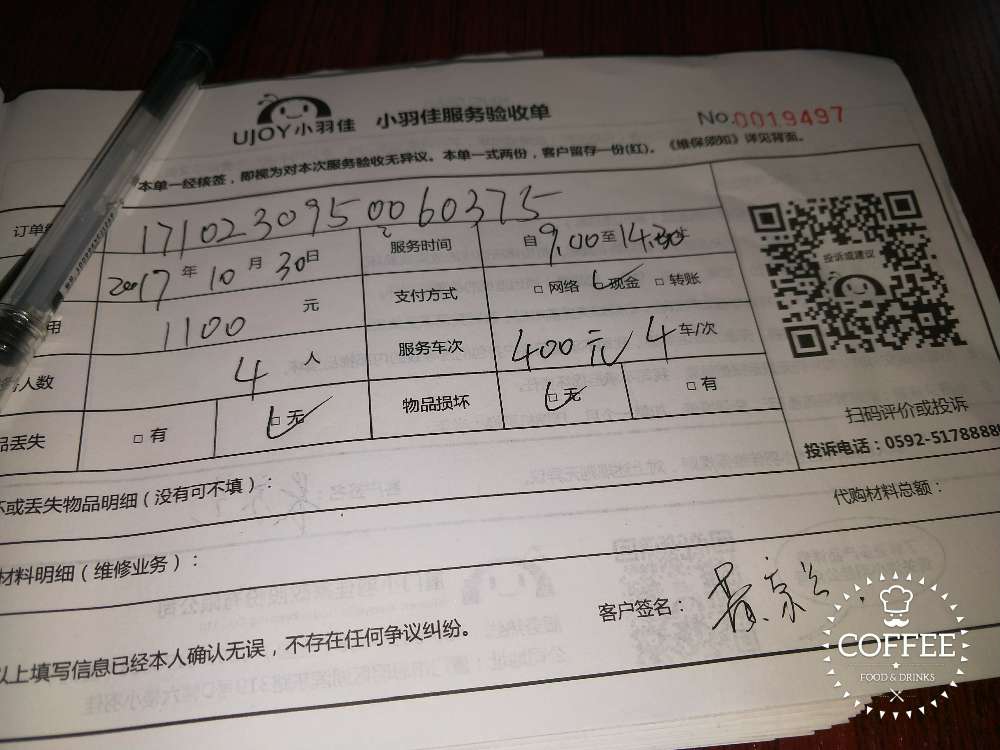 UJOY小羽佳 小羽佳服务验收单 No.0019497
本单一经核签，即视为对本次服务验收无异议。本单一式两份，客户留存一份(红)。《维保须知》详见背面。
订单 1710230950060375
2017年10月30日 服务时间 自9:00至14:30
用 1100元 支付方式 □网络 □现金 □转账
人数 4人 服务车次 400元 4车/次
品丢失 □有 □无 物品损坏 □无 □有
投诉或建议
扫码评价或投诉
投诉电话：0592-5178888
坏或丢失物品明细（没有可不填）：
代购材料总额：
材料明细（维修业务）：
以上填写信息已经本人确认无误，不存在任何争议纠纷。
客户签名：
COFFEE
FOOD & DRINKS